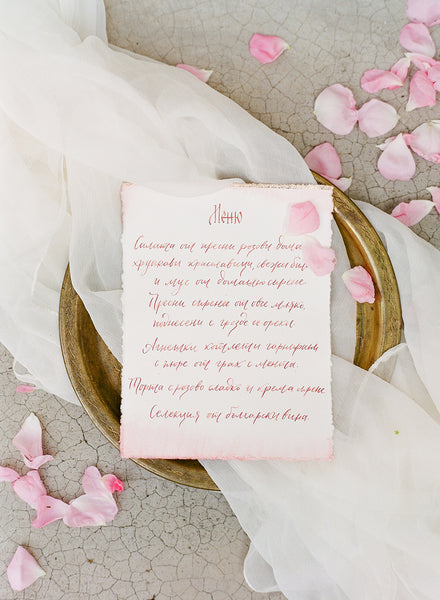 Меню
Салата от пресни розови дома
хрупкави краставици, свежи би
и мус от домашно сирене
Пресни сирена от овче мляко,
поднесени с грозде и орехи.
Агнешки котлети гарнирани
с пюре от грах с мента.
Торта с розово сладко и крема сирене
Селекция от български вина.